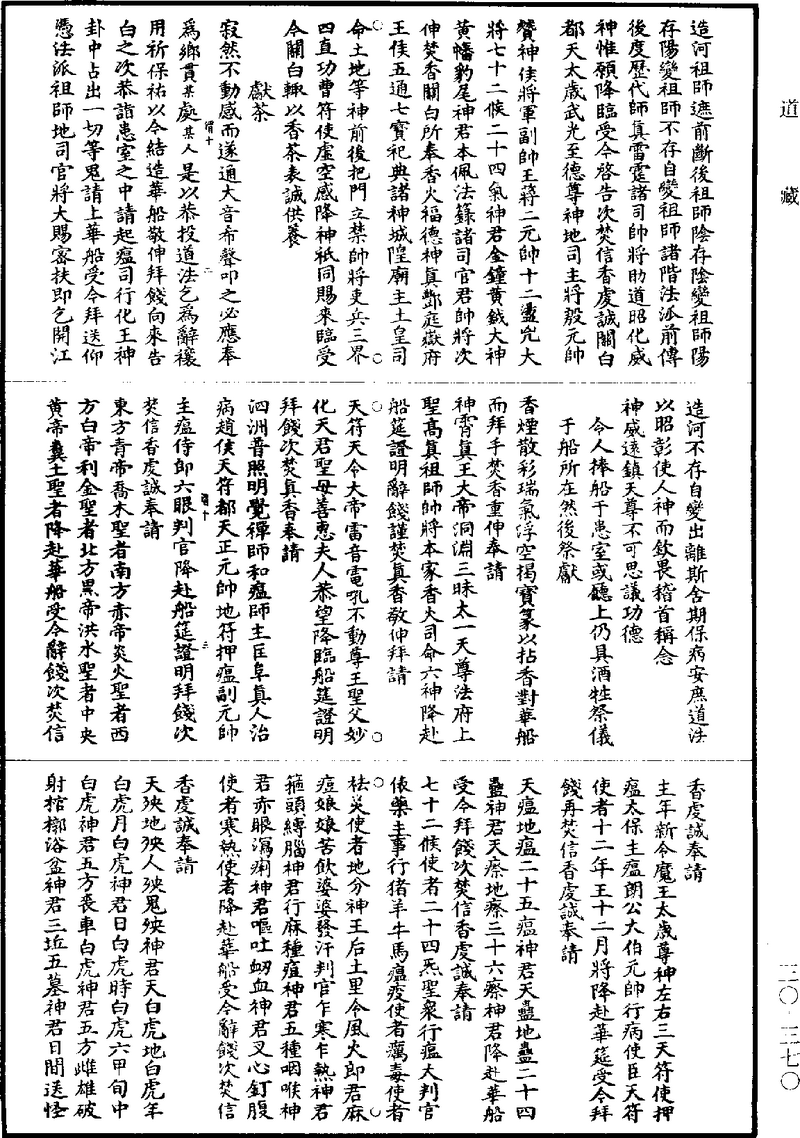 道藏
三〇·三七〇
造河祖師遮前斷後祖師陰存陰變祖師陽
存陽變祖師不存自變祖師諸階法派前傳
後度歷代師真雷霆諸司帥將助道昭化威
神惟願降臨受今啓告次焚信香虔誠關白
都天太歲武光至德尊神地司主將殷元帥
贊神侯將軍副帥王蔣二元帥十二盪兇大
將七十二候二十四氣神君金鐘黃鉞大神
黃幡豹尾神君本佩法籙諸司官君帥將次
伸焚香關白所奉香火福德神真酆庭嶽府
王侯五通七寶祀典諸神城隍廟主土皇司
命土地等神前後把門立禁帥將吏兵三界
四直功曹符使虛空感降神祇同賜來臨受
今關白輙以香茶表誠供養
獻茶
寂然不動感而遂通大音希聲叩之必應奉
為鄉貫某處某人是以恭投道法乞為辭禳
用祈保祐以今結造華船敬伸拜餞向來告
白之次恭詣患室之中請起瘟司行化王神
卦中占出一切等鬼請上華船受今拜送仰
憑法派祖師地司官將大賜密扶即乞開江
造河不存自變出離斯舍期保病安庶道法
以昭彰使人神而欽畏稽首稱念
神威遠鎮天尊不可思議功德
令人捧船于患室或廳上仍具酒牲祭儀
于船所在然後祭獻
香煙散彩瑞氣浮空揭寶篆以拈香對華船
而拜手焚香重伸奉請
神霄真王大帝洞淵三昧太一天尊法府上
聖高真祖師帥將本家香火司命六神降赴
船筵證明辭餞謹焚真香敬伸拜請
天符天令大帝雷音電吼不動尊王聖父妙
化天君聖母善惠夫人恭望降臨船筵證明
拜餞次焚真香奉請
泗洲普照明覺禪師和瘟師主匡阜真人治
病趙侯天符都天正元帥地符押瘟副元帥
主瘟侍郎六眼判官降赴船筵證明拜餞次
焚信香虔誠奉請
東方青帝喬木聖者南方赤帝炎火聖者西
方白帝利金聖者北方黑帝洪水聖者中央
黃帝糞土聖者降赴華船受今辭餞次焚信
香虔誠奉請
主年新令魔王太歲尊神左右三天符使押
瘟太保主瘟朗公大伯元帥行病使臣天符
使者十二年王十二月將降赴華筵受今拜
餞再焚信香虔誠奉請
天瘟地瘟二十五瘟神君天蠱地蠱二十四
蠱神君天瘵地瘵三十六瘵神君降赴華船
受今拜餞次焚信香虔誠奉請
七十二候使者二十四炁聖衆行瘟大判官
俵藥主事行猪羊牛馬瘟疫使者癘毒使者
袪災使者地分神王后土里令風火郎君麻
痘娘娘苦飲婆婆發汗判官乍寒乍熱神君
箍頭縛腦神君行麻種痘神君五種咽喉神
君赤眼瀉痢神君嘔吐衂血神君叉心釘腹
使者寒熱使者降赴華船受今辭餞次焚信
香虔誠奉請
天殃地殃人殃鬼殃神君天白虎地白虎年
白虎月白虎神君日白虎時白虎六甲旬中
白虎神君五方喪車白虎神君五方雌雄破
射棺槨浴盆神君三坵五墓神君日間送怪